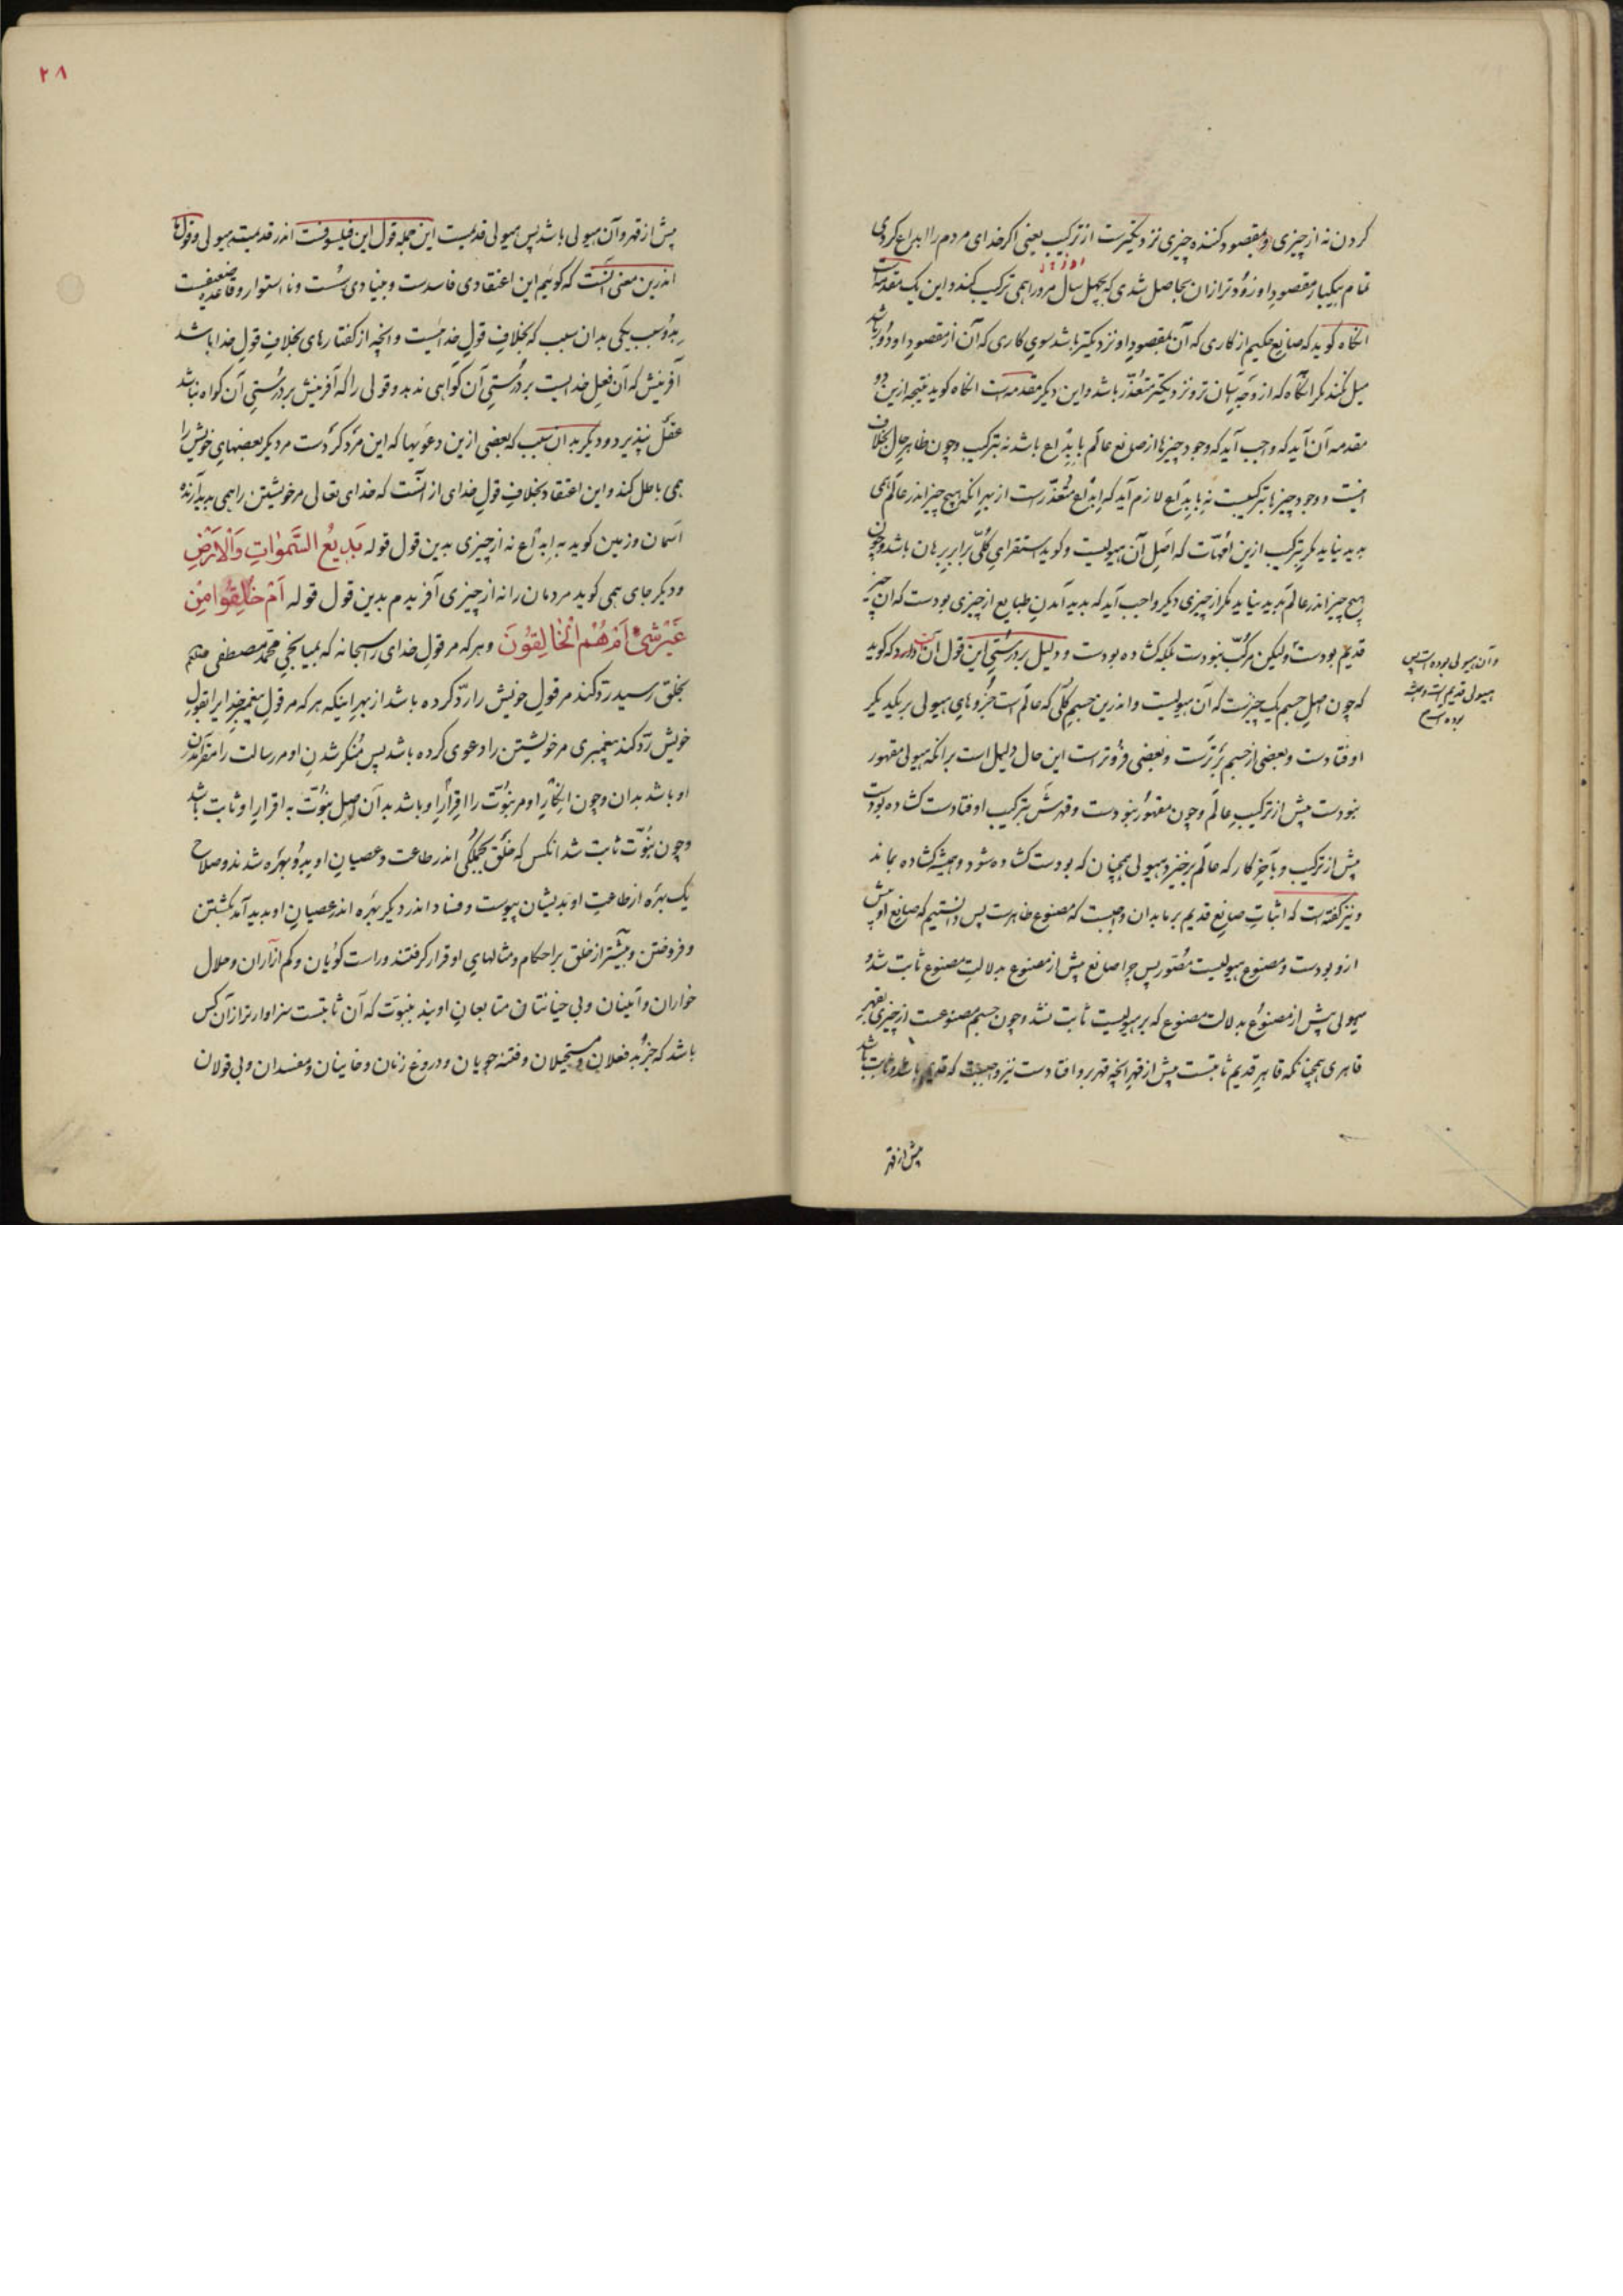 کردن نه از چیزی و مقصود کننده چیزی نزدیکترست از ترکیب یعنی اگر خدای مردم را ابداع کردی
تمام بیکبار مقصود او زودتر ازان بحاصل شدی که بچهل سال مرورا همی ترکیب کند و این یک مقدمه است
انگاه گوید که صانع حکیم از کاری که آن بمقصود او نزدیکتر باشد سوی کاری که آن از مقصود او دور باشد
میل نکند مگر انگاه که از وجه آسان تر و نزدیکتر متعذر باشد و این دیگر مقدمه است انگاه گوید نتیجه ازین دو
مقدمه آن آید که واجب آید که وجود چیزها از صانع عالم بابداع باشد نه بترکیب و چون ظاهر حال بخلاف
اینست و وجود چیزها بترکیبست نه بابداع لازم آید که ابداع متعذرست از بهر انکه هیچ چیز اندر عالم همی
پدید نیاید مگر بترکیب ازین امهات که اصل آن هیولیست و گوید استقرای کلی برابر برهان باشد و چون
هیچ چیز اندر عالم پدید نیاید مگر از چیزی دیگر واجب آید که پدید آمدن طبایع از چیزی بودست که آن چیز
قدیم بودست و لیکن مرکب نبودست بلکه گشاده بودست و دلیل بر درستی این قول آن آرد که گوید
که چون اصل جسم یک چیزست که آن هیولیست و اندرین جسم کلی که عالم است جزوهای هیولی بر یکدیگر
اوفتادست و بعضی از جسم برترست و بعضی فروترست این حال دلیل است برانکه هیولی مقهور
نبودست پیش از ترکیب عالم و چون مقهور نبودست و قهرش بترکیب اوفتادست گشاده بودست
پیش از ترکیب و بآخر کار که عالم برخیزد هیولی همچنان که بودست گشاده شود و همیشه گشاده بماند
و نیز گفته است که اثبات صانع قدیم بر ما بدان واجبست که مصنوع ظاهرست پس دانستیم که صانع او پیش
ازو بودست و مصنوع هیولیست مصور پس چرا صانع پیش از مصنوع بدلالت مصنوع ثابت شد و
هیولی پیش از مصنوع بدلالت مصنوع که بر هیولیست ثابت نشد و چون جسم مصنوعست از چیزی بقهر
قاهری همچنانکه قاهر قدیم ثابتست پیش از قهر انچه قهر برو افتادست نیز واجبست که قدیم باشد و ثابت باشد
پیش از قهر
و آن هیولی بوده است پس
هیولی قدیم است
۲۸
پیش از قهر و آن هیولی باشد پس هیولی قدیمست این جمله قول این فیلسوفست اندر قدیمیت هیولی و قول ما
اندرین معنی آنست که گوئیم این اعتقادی فاسدست و بنیادی سست و نا استوار و قاعده ضعیفست
بدو سبب یکی بدان سبب که بخلاف قول خدایست و انچه از گفتارهای بخلاف قول خدا باشد
آفرینش که آن فعل خدایست بر درستی آن گواهی ندهد و قولی را که آفرینش بر درستی آن گواه نباشد
عقل نپذیرد و دیگر بدان سبب که بعضی ازین دعویها که این مرد کردست مر دیگر بعضهای خویش را
همی باطل کند و این اعتقاد بخلاف قول خدای از آنست که خدای تعالی مر خویشتن را همی پدید آرنده
آسمان و زمین گوید به ابداع نه از چیزی بدین قول قوله بَدِیعُ السَّمٰوَاتِ وَالْاَرْضِ
و دیگر جای همی گوید مردمان را نه از چیزی آفریدم بدین قول قوله اَمْ خُلِقُوا مِنْ
غَیْرِ شَیْءٍ اَمْ هُمُ الْخَالِقُونَ و هر که مر قول خدای را سبحانه که بمیانجی محمد مصطفی صلعم
بخلق رسید رد کند مر قول خویش را رد کرده باشد از بهر اینکه هر که مر قول پیغمبر خدایرا بقول
خویش رد کند پیغمبری مر خویشتن را دعوی کرده باشد پس منکر شدن او مر رسالت را مقر آمدن
او باشد بدان و چون انکار او مر نبوت را اقرار او باشد بدان اصل نبوت به اقرار او ثابت باشد
و چون نبوت ثابت شد انکس که خلق بجملگی اندر طاعت و عصیان او بدو بهره شدند و صلاح
یک بهره از طاعت او بدیشان پیوست و فساد اندر دیگر بهره اندر عصیان او پدید آمد بکشتن
و فروختن و بیشتر از خلق بر احکام و مثالهای او قرار گرفتند و راست گویان و کم آزاران و حلال
خواران و امینان و بی خیانتان متابعان اویند بنبوت که آن ثابتست سزاوارتر از آن کس
باشد که جز بدفعلان و مستحیلان و فتنه جویان و دروغ زنان و خاینان و مفسدان و بی قولان